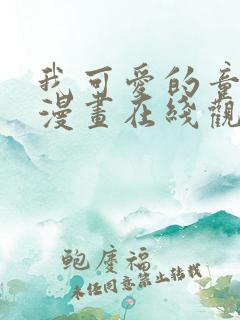 我可愛的童
漫畫在綫觀
鲍慶福
未经同意禁止转载